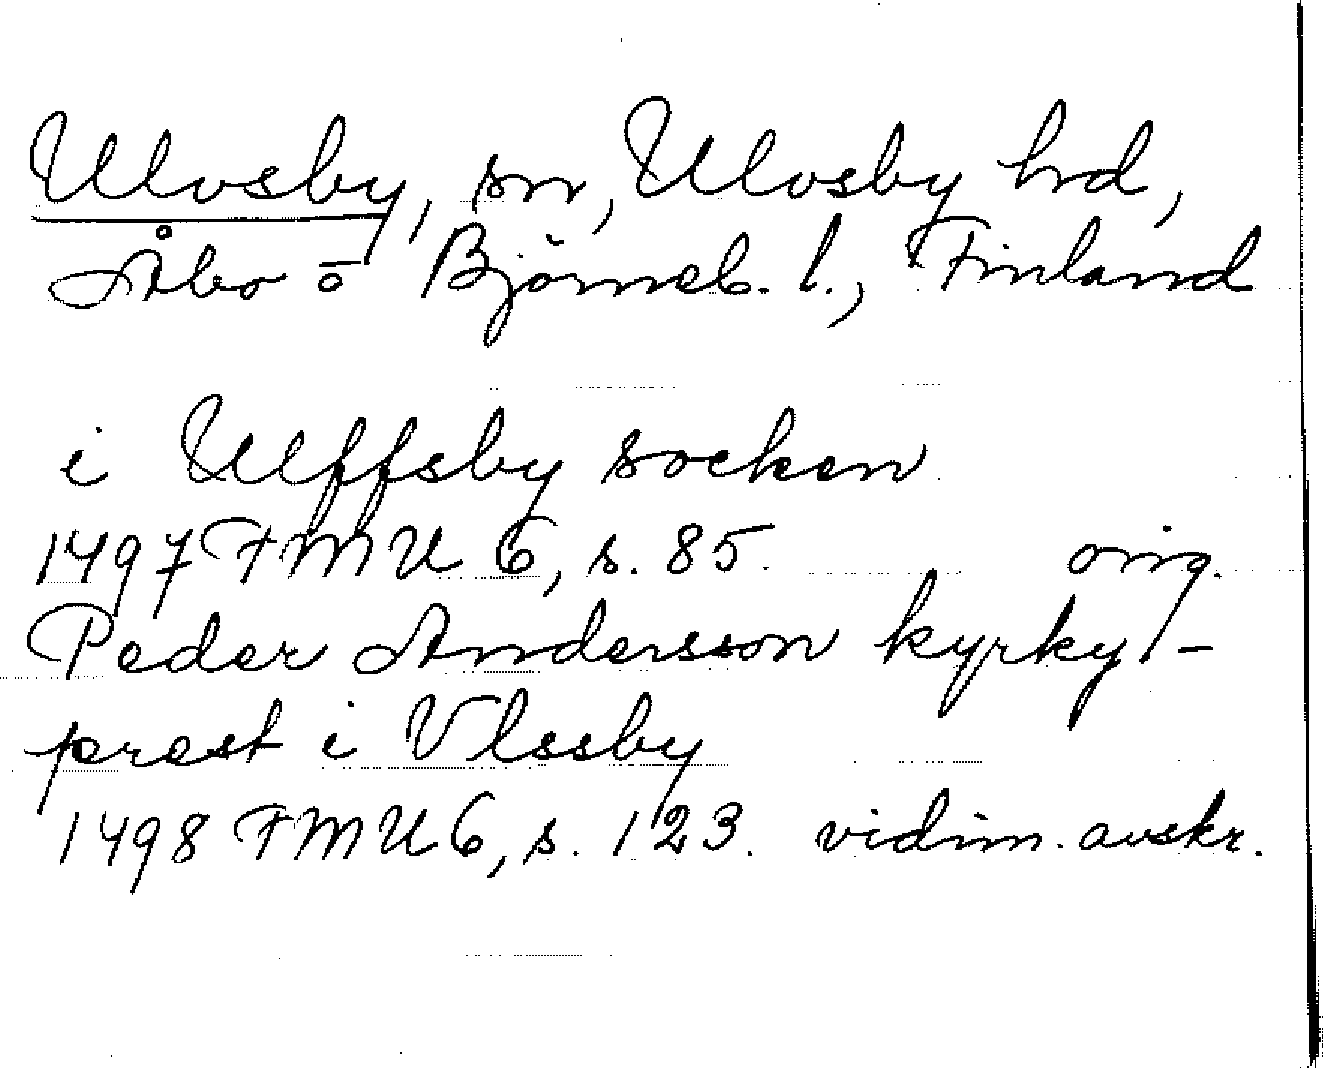 Ulvsby, sn, Ulvsby hd,
Åbo o Björneb. l., Finland
i Ulffsby socken
1497 FMU 6, s. 85. orig.
Peder Andersson kyrky-
prest i Vlssby
1498 FMU 6, s. 123. vidim. avskr.